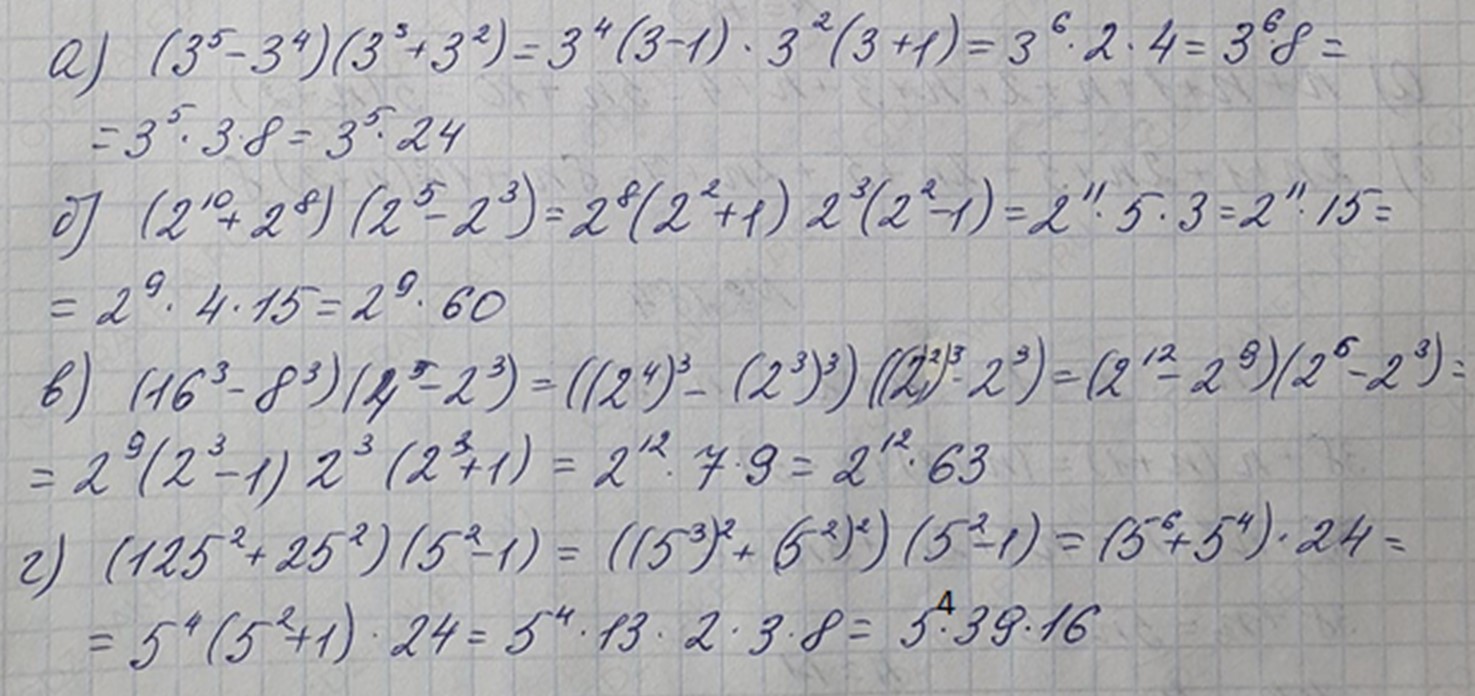 а) (3⁵-3⁴)(3³+3²)=3⁴(3-1)·3²(3+1)=3⁶·2·4=3⁶·8=
=3⁵·3·8=3⁵·24
б) (2¹⁰+2⁸)(2⁵-2³)=2⁸(2²+1) 2³(2²-1)=2¹¹·5·3=2¹¹·15=
=2⁹·4·15=2⁹·60
в) (16³-8³)(4³-2³)=((2⁴)³-(2³)³)((2²)³-2³)=(2¹²-2⁹)(2⁶-2³)=
=2⁹(2³-1) 2³(2³+1)=2¹²·7·9=2¹²·63
г) (125²+25²)(5²-1)=((5³)²+(5²)²)(5²-1)=(5⁶+5⁴)·24=
=5⁴(5²+1)·24=5⁴·13·2·3·8=5⁴·39·16